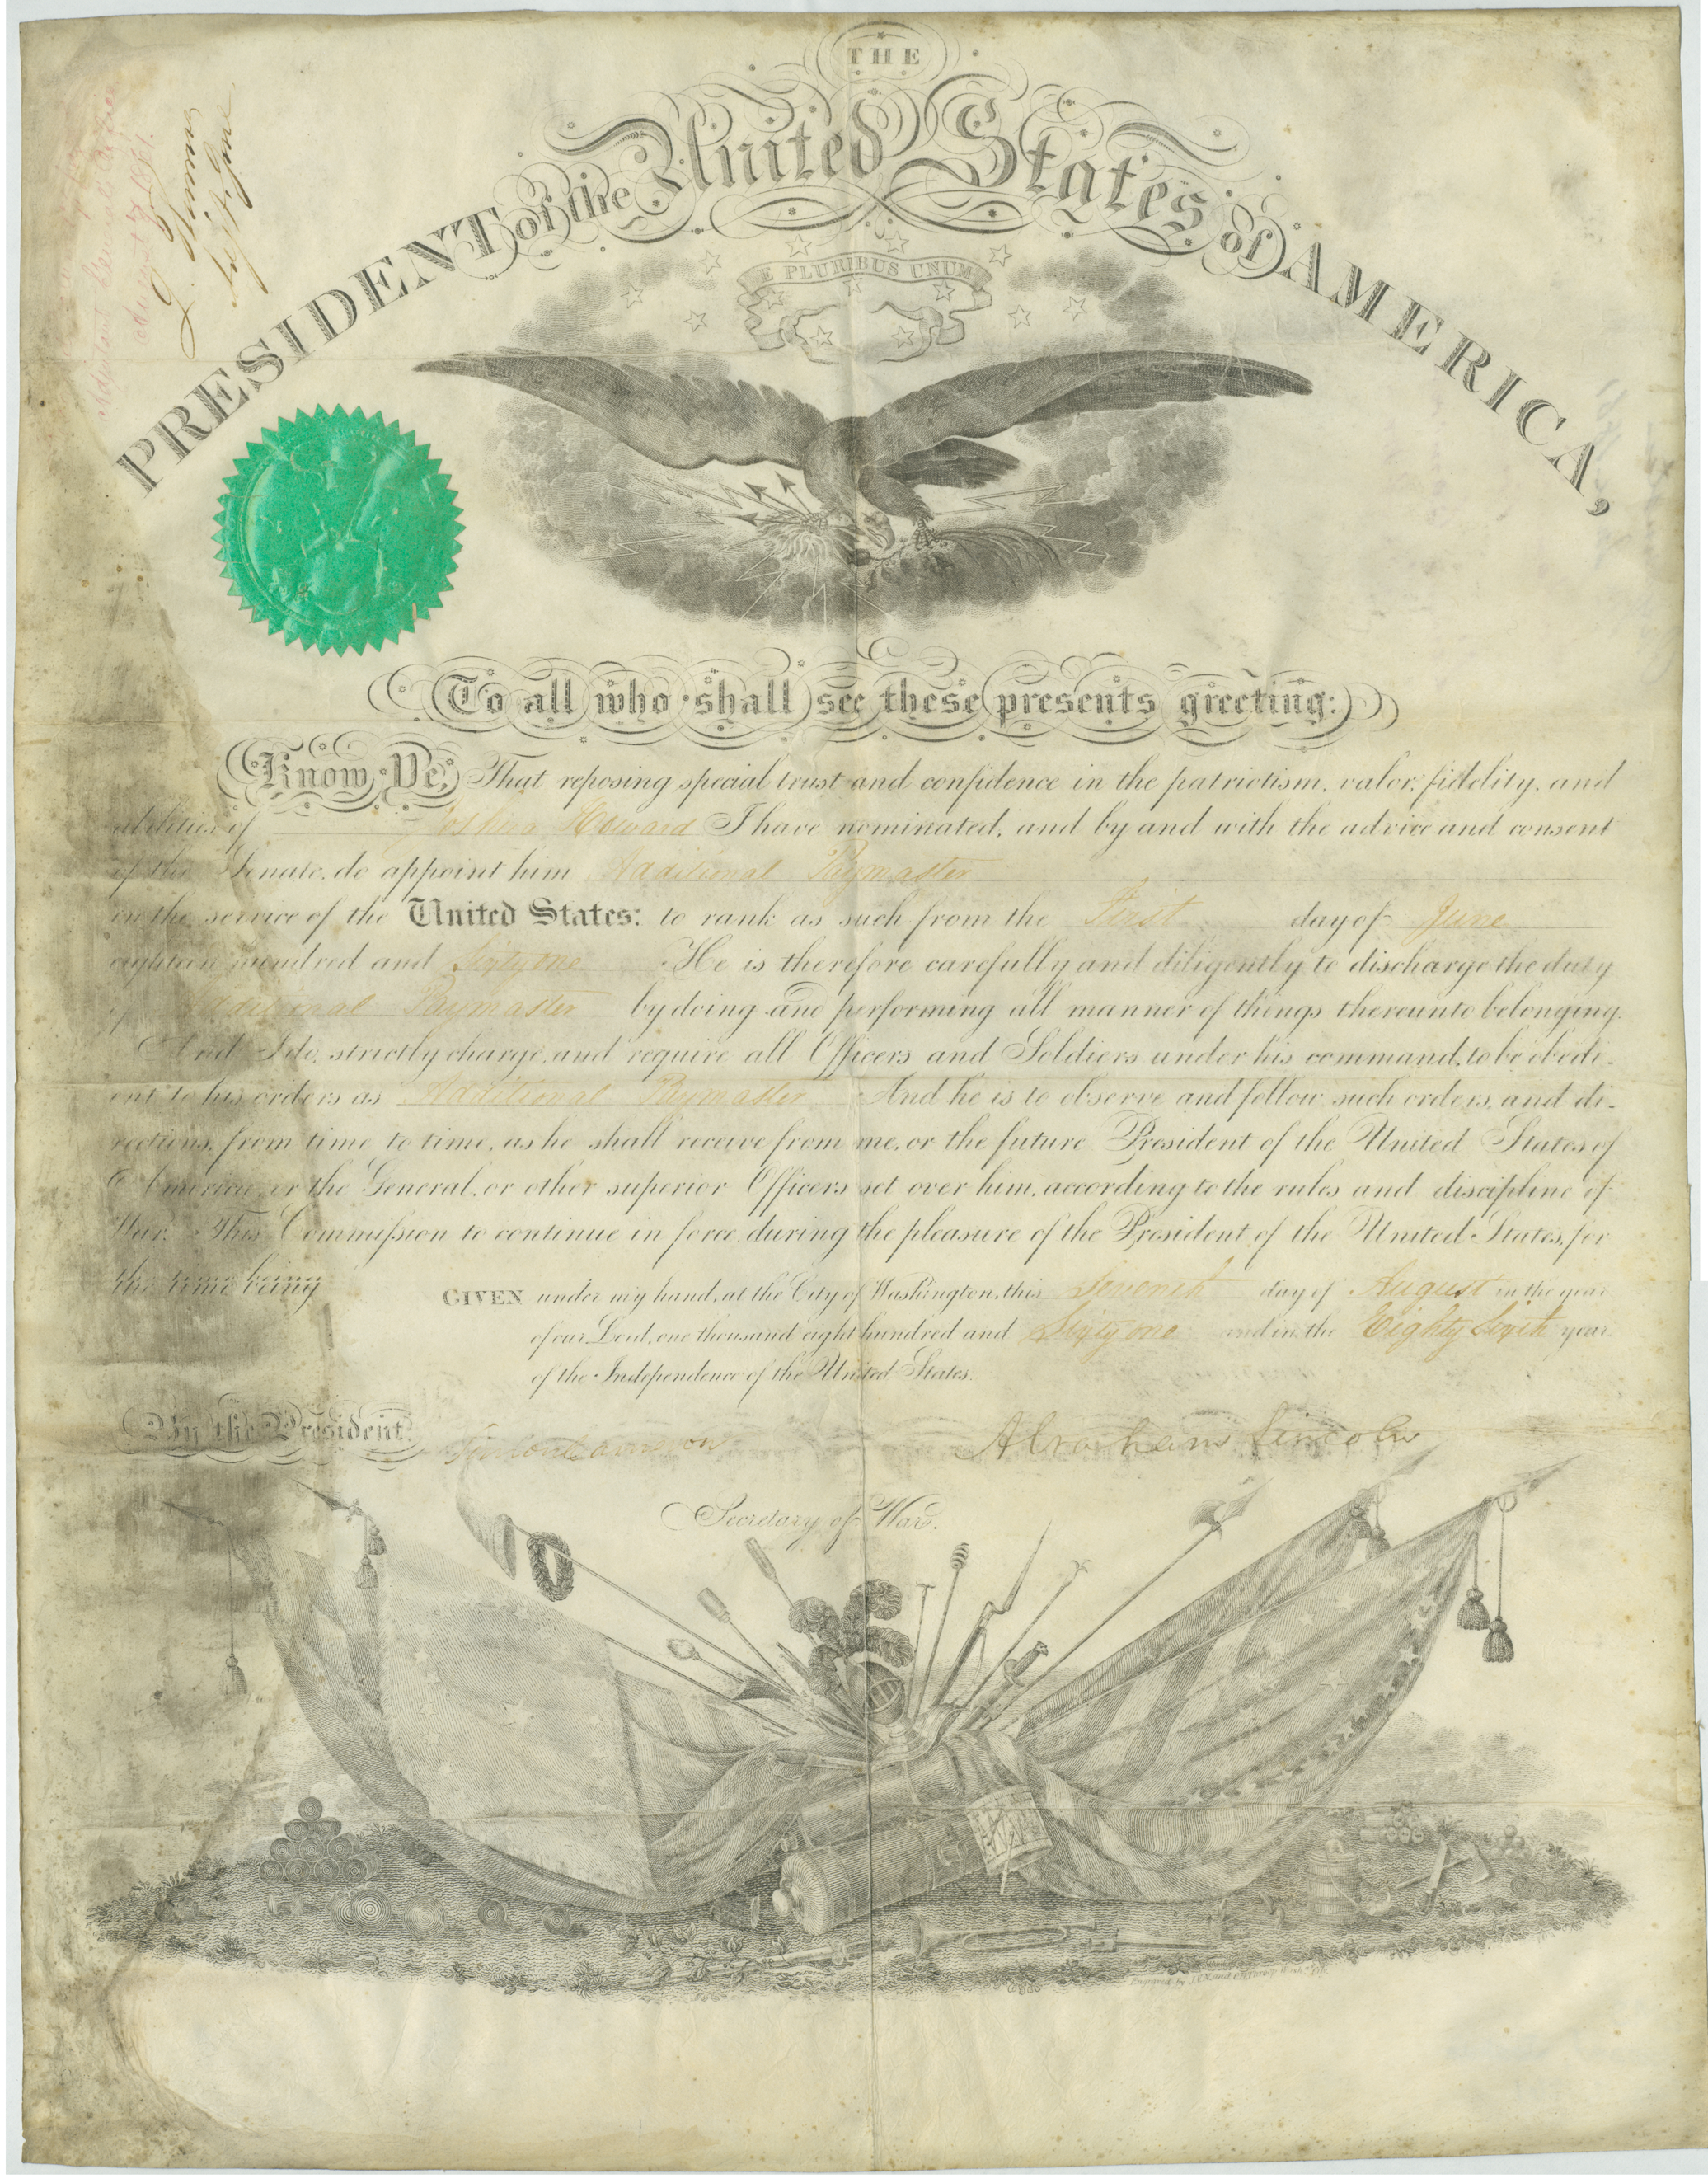 THE
PRESIDENT of the United States of AMERICA,
E PLURIBUS UNUM
To all who shall see these presents greeting:
Know Ye, That reposing special trust and confidence in the patriotism, valor, fidelity, and
abilities of Joshua Howard I have nominated, and by and with the advice and consent
of the Senate, do appoint him Additional Paymaster
in the service of the United States: to rank as such from the First day of June
eighteen hundred and Sixty one He is therefore carefully and diligently to discharge the duty
of Additional Paymaster by doing and performing all manner of things thereunto belonging.
And I do, strictly charge, and require all Officers and Soldiers under his command, to be obedi-
ent to his orders as Additional Paymaster And he is to observe and follow such orders, and di-
rections, from time to time, as he shall receive from me, or the future President of the United States of
America, or the General, or other superior Officers set over him, according to the rules and discipline of
War. This Commission to continue in force, during the pleasure of the President of the United States, for
the time being
GIVEN under my hand, at the City of Washington, this Seventh day of August in the year
of our Lord, one thousand eight hundred and Sixty one and in the Eighty Sixth year
of the Independence of the United States.
By the President.
Simon Cameron
Abraham Lincoln
Secretary of War.
Adjutant General's Office
August 8 1861.
Engraved by